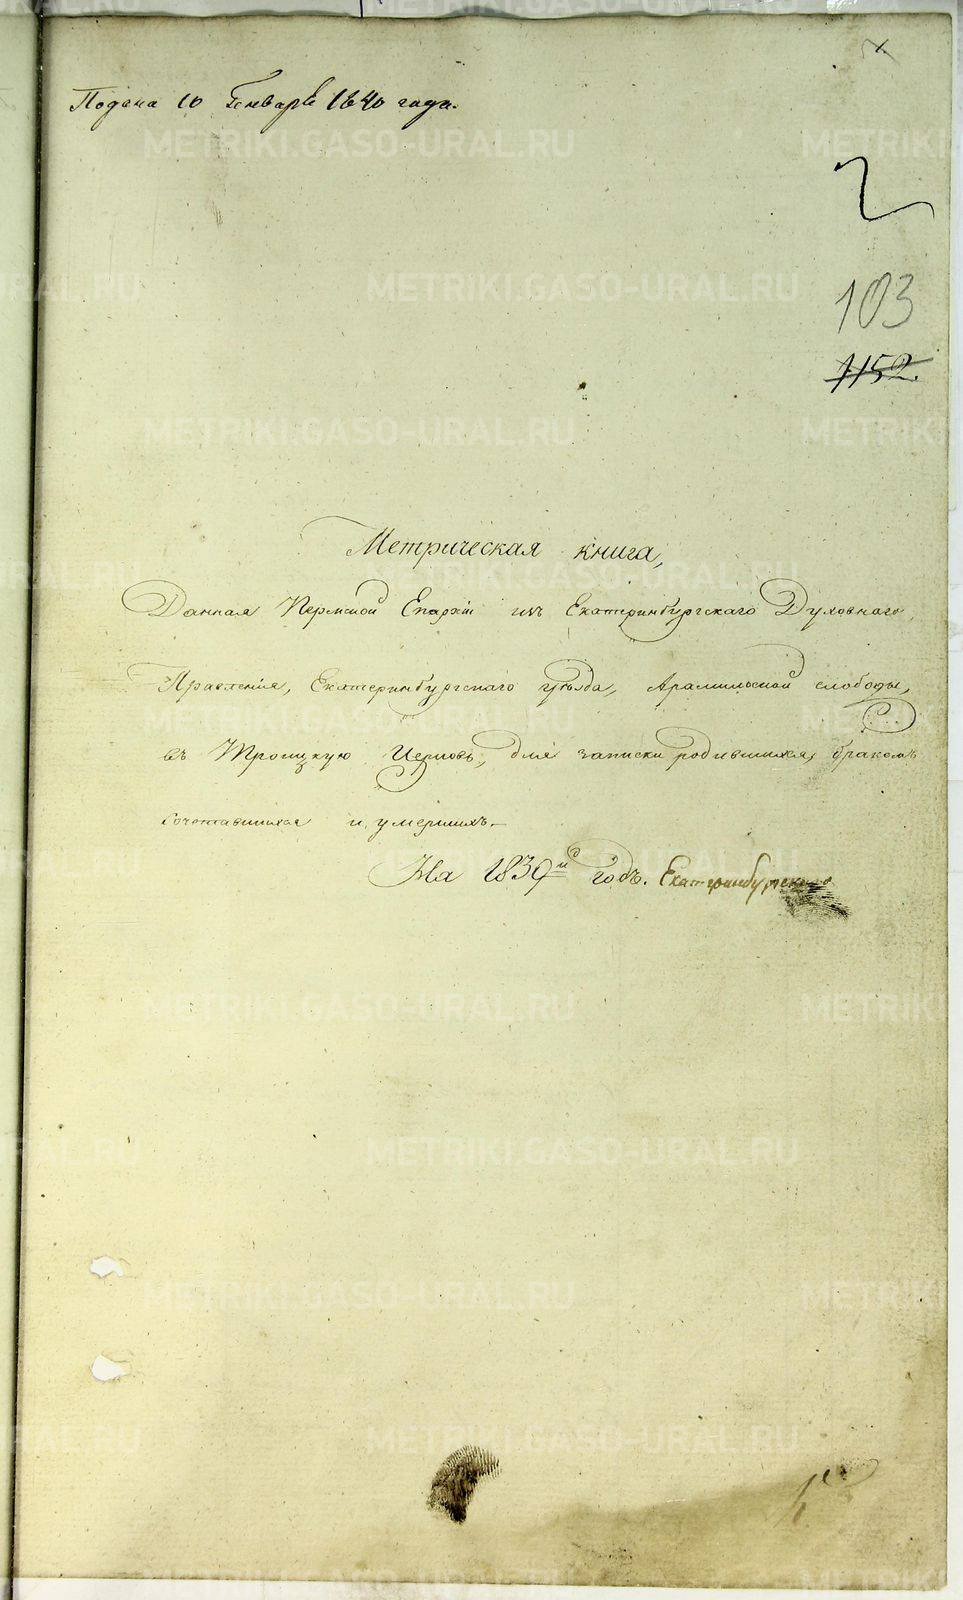 Подана 10 Генваря 1840 года.
2
103
1152.
Метрическая книга,
Данная Пермской Епархіи изъ Екатеринбургскаго Духовнаго
Правленія, Екатеринбургскаго уѣзда, Арамильской слободы,
въ Троицкую Церковь, для записки родившихся, бракомъ
сочетавшихся и умершихъ.
На 1839й годъ. Екатеринбургскаго
METRIKI.GASO-URAL.RU